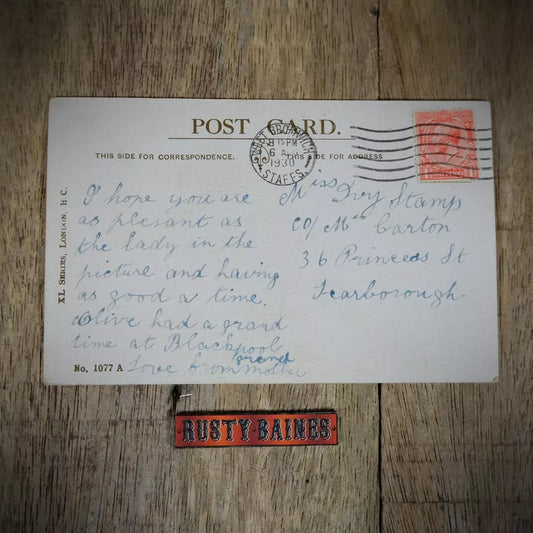 POST CARD.
THIS SIDE FOR CORRESPONDENCE.
THIS SIDE FOR ADDRESS
WEST BROMWICH
8 15 PM
6 AU
1930
STAFFS.
I hope you are
as plesant as
the lady in the
picture and having
as good a time.
Olive had a grand
time at Blackpool
Love from grand mother
Miss Ivy Stamp
c/o Mrs Carton
36 Princess St
Scarborough.
XL SERIES, LONDON, E C.
No. 1077 A
RUSTY BAINES